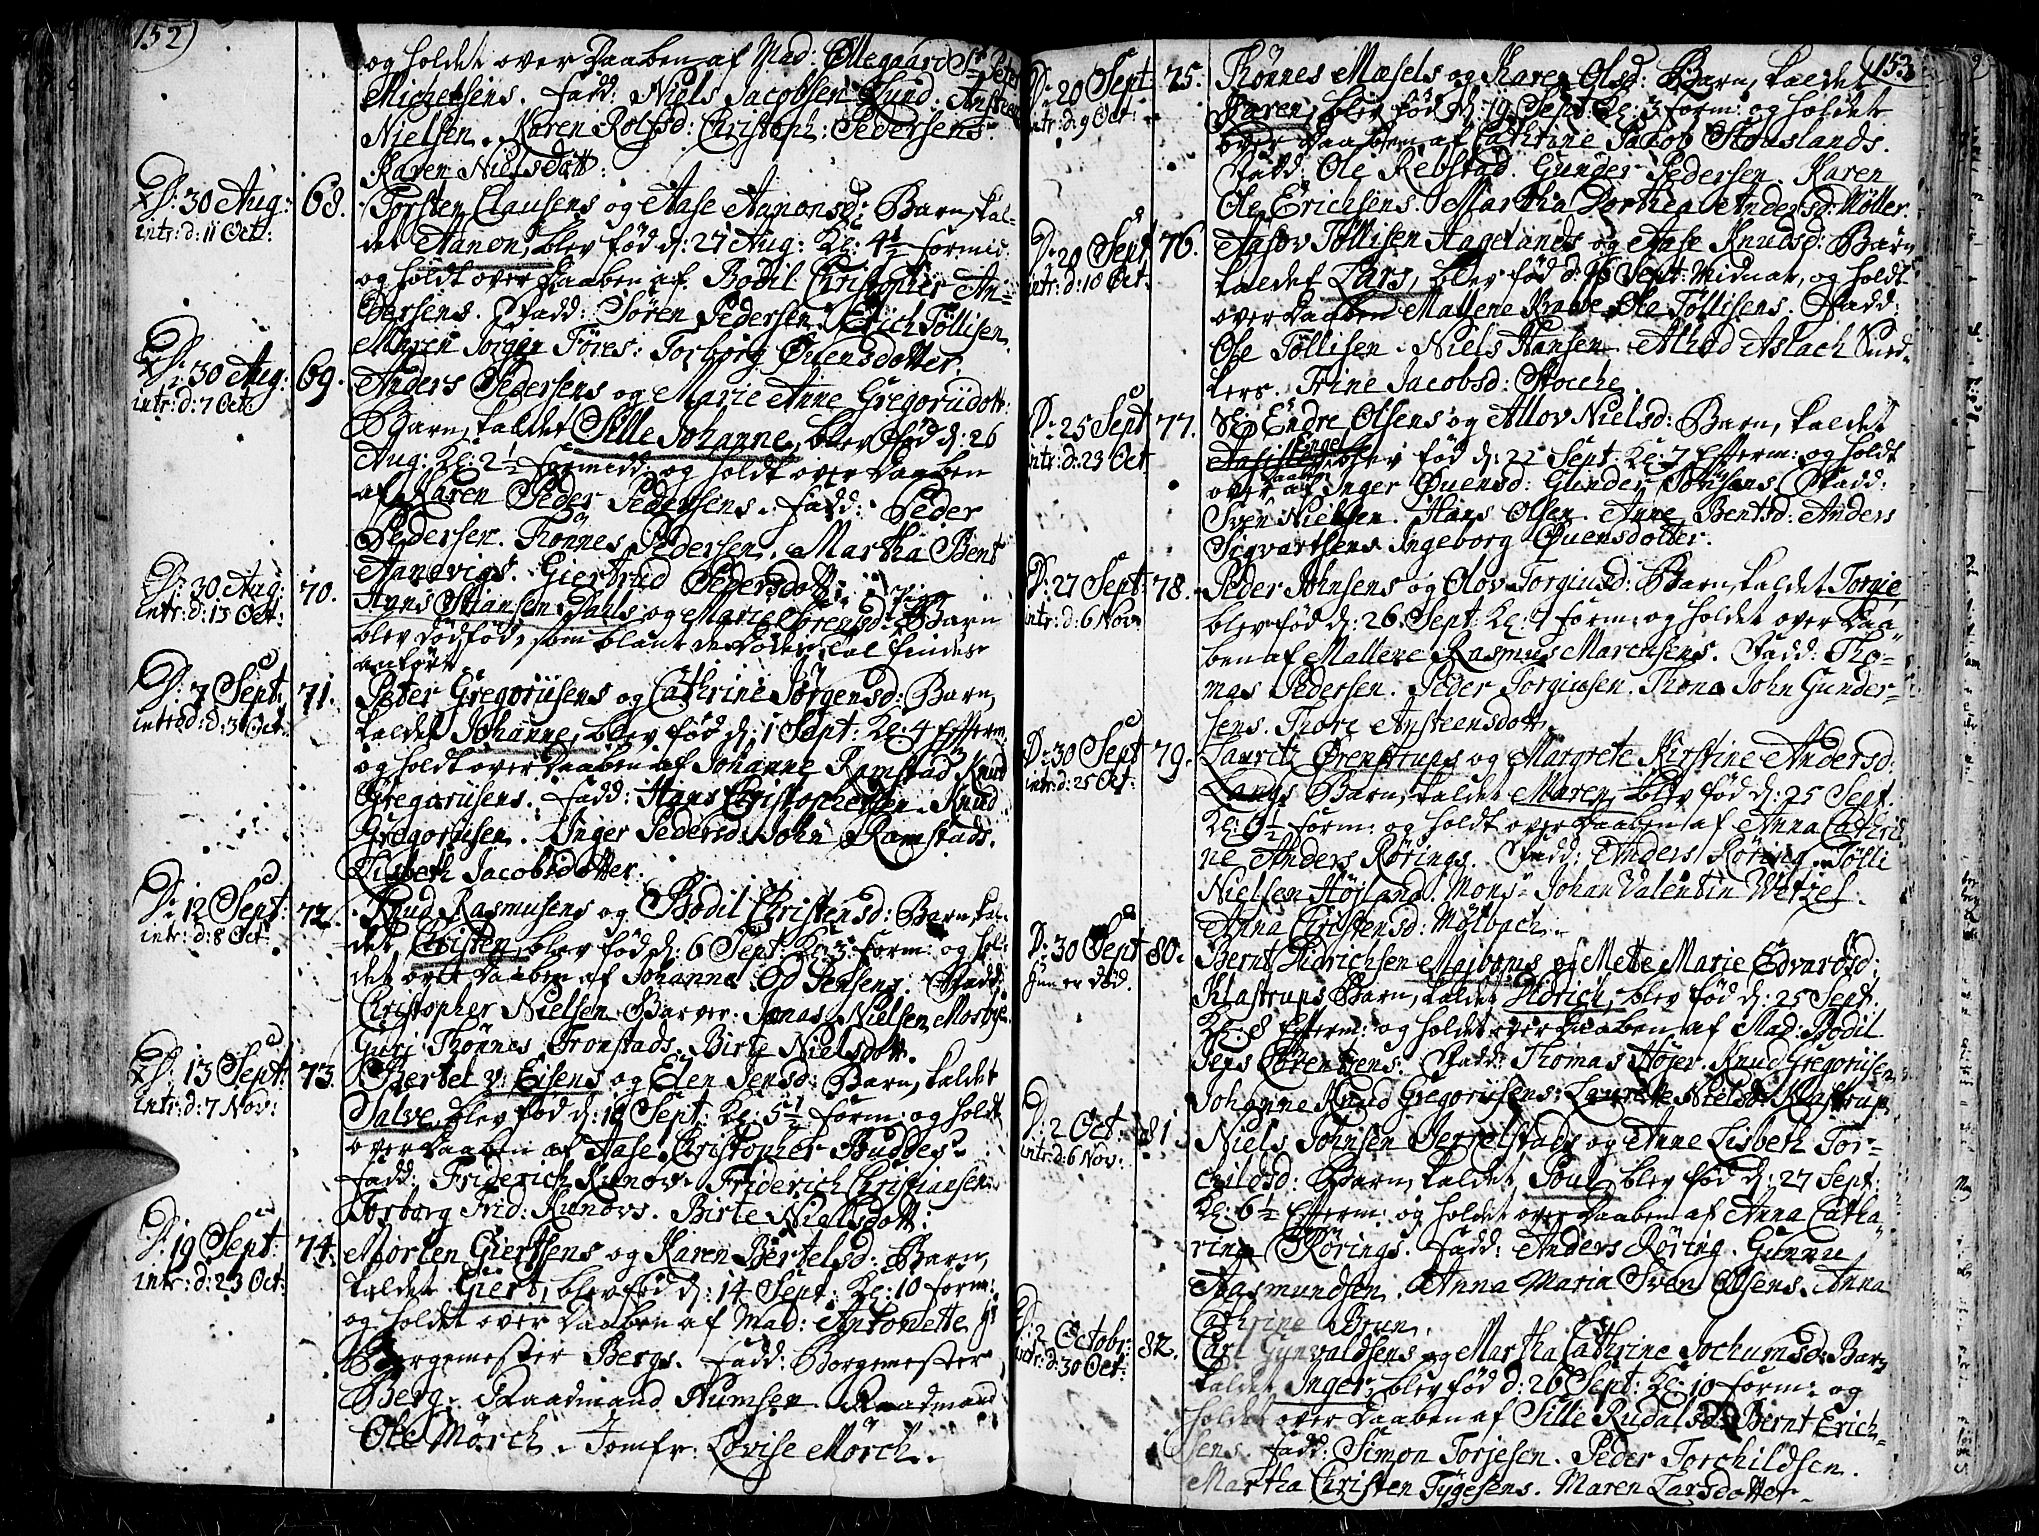 152)
og holdet over Daaben af Mad: Øllegaard Sr Peter
Michelsens. Fadd: Niels Jacobsen Lund. Ansteen
Nielsen. Karen Rolfsd: Christoph: Pedersens
Karen Nielsdott:
D: 30 Aug: 68. Torsten Clausens og Aase Aanonsd: Barn, kal-
intr: d: 11 Oct: det Aanon, blev fød d: 27 Aug: Kl: 4½ formid:
og holdt over Daaben af Bodil Christopher An-
dersens. Fadd: Søren Pedersen. Erich Töllisen.
Maren Jørgen Föres: Torborg Øuensdotter.
D: 30 Aug: 69. Anders Pedersens og Marie Anne Gregoriidott:
intr: d: 7 Oct: Barn, kaldet Sille Johanne, blev fød d: 26
Aug: Kl: 2½ formidd: og holdt over Daaben
af Karen Peder Pedersens. Fadd: Peder
Pedersen. Tönnes Pedersen. Martha Bent
Aanavigs. Giertrud Pedersdott:
D: 30 Aug: 70. Hans Stiansen Dahls og Marie Sørensd: Barn
intr: d: 13 Oct: blev dødfød, som blant de Døde skal findes
anført.
D: 7 Sept: 71. Peter Gregoriisens og Cathrine Jörgensd: Barn,
introd: d: 30 Oct: kaldet Johanne, blev fød d: 1 Sept: Kl: 4 Efterm:
og holdt over Daaben af Johanne Ramstad Knud
Gregoriisens. Fadd: Hans Christophersen. Knud
Gregoriisen. Inger Pedersd: John Ramstads.
Lisbeth Jacobsdotter.
D: 12 Sept: 72. Knud Rasmusens og Bodil Christensd: Barn, kal-
intr: d: 8 Oct: det Christen, blev fød d: 6 Sept: Kl: 3 form: og hol-
det over Daaben af Johanna Od Jensens. Fadd:
Christopher Nielsen Barver. Jonas Nielsen Mosbye.
Guri Thönnes Tronstads. Birte Nielsdott.
D: 13 Sept: 73. Bertel v: Eisens og Elen Jensd: Barn, kaldet
intr: d: 7 Nov: Salve, blev fød d: 10 Sept: Kl: 5½ form: og holdt
over Daaben af Aase Christopher Buddes.
Fadd: Friderich Runov. Friderich Christiansen.
Torborg Frid: Runovs. Birte Nielsdott:
D: 19 Sept: 74. Morten Giertsens og Karen Bertelsd: Barn,
intr: d: 23 Oct: kaldet Giert, blev fød d: 14 Sept: Kl: 10 form:
og holdet over Daaben af Mad: Antonette Hr
Borgemester Bergs. Fadd: Borgemester
Berg. Raadmand Numsen. Raadmand
Ole Mörch. Jomfr: Lovise Mörch.
153
D: 20 Sept: 75. Tönnes Mæsels og Karen Olsd: Barn, kaldet
intr: d: 9 Oct: Karen, blev fød d: 19 Sept: Kl: 3 form: og holdet
over Daaben af Cathrine Jacob Stouslands.
Fadd: Ole Rebstad. Gunder Pedersen. Karen
Ole Erichsens. Martha Dorthea Andersd: Möller.
D: 20 Sept: 76. Aasov Töllisen Aagelands og Aase Knudsd: Barn
intr: d: 10 Oct: kaldet Lars, blev fød d: 16 Sept: Midnat, og holdt
over Daaben Mallene Ole Töllisens. Fadd:
Ole Töllisen. Niels Hansen. Alhed Aslach Sned-
kers. Trine Jacobsd: Stocche.
D: 25 Sept 77. Sl: Endre Olsens og Allov Nielsd: Barn, kaldet
intr: d: 23 Oct Engel blev fød d: 22 Sept: Kl: 7 Efterm: og holdt
over Daaben af Inger Øuensd: Gunder Sörisens Fadd:
Sven Nielsen. Hans Olsen. Anne Bentsd: Anders
Sigvartsens. Ingeborg Øuensdotter.
D: 27 Sept: 78. Peder Johnsens og Olov Torgiusd: Barn, kaldet Torgie,
intr: d: 6 Nov: blev fød d: 26 Sept: Kl: 9 form: og holdet over Daa-
ben af Mallene Rasmus Marcusens. Fadd: Tho-
mas Pedersen. Peder Torgiusen. Thona John Gunder-
sens. Thore Ansteensdott
D: 30 Sept 79. Lauritz Ørenstrups og Margrete Kirstine Andersd:
intr: d: 25 Oct: Langs Barn, kaldet Maren, blev fød d: 25 Sept:
Kl: 6½ form: og holdt over Daaben af Anna Cathri
ne Anders Rörings. Fadd: Anders Röring. Tölli
Nielsen Höjland. Monsr Johan Valentin Wetzel.
Anna Christensd: Mölbach.
D: 30 Sept 80. Bernt Didrichsen Majboms og Mette Marie Edvardsd:
hun er død. Klastrups Barn, kaldet Didrich, blev fød d: 25 Sept:
Kl: 8 Efterm: og holdet over Daaben af Mad: Bodil
Jeps Lorentzens. Fadd: Thomas Höjer. Knud Gregoriisen
Johanne Knud Gregoriisens. Laurette Nielsd: Klastrup
D: 2 Oct: 81. Niels Johnsen Jerrelstads og Anne Lisbeth Tor-
intr: d: 6 Nov: childsd: Barn, kaldet Poul, blev fød d: 27 Sept:
Kl: 6½ Efterm: og holdet over Daaben af Anna Catha-
rina Rörings. Fadd: Anders Röring. Gunnu
Aasmundsen. Anna Maria Sven Olsens. Anna
Cathrine Brun.
D: 2 Octobr: 82. Carl Gunvaldsens og Martha Cathrine Jochumsd: Barn
intr: d: 30 Oct: kaldet Inger, blev fød d: 26 Sept: Kl: 10 form: og
holdet over Daaben af Sille Rudalsd: Bernt Erich-
sens. Fadd: Simon Torjesen. Peder Torchildsen.
Martha Christen Tygesens. Maren Larsdotter.